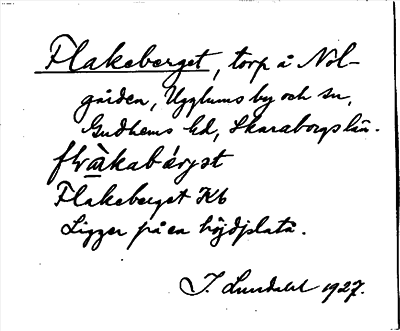 Flakeberget, torp å Nol-
gården, Ugglums by och sn,
Gudhems hd, Skaraborgs län.
flàkabárjst
Flakeberget Kb
Ligger på en höjdplatå.
J. Lundahl 1927.